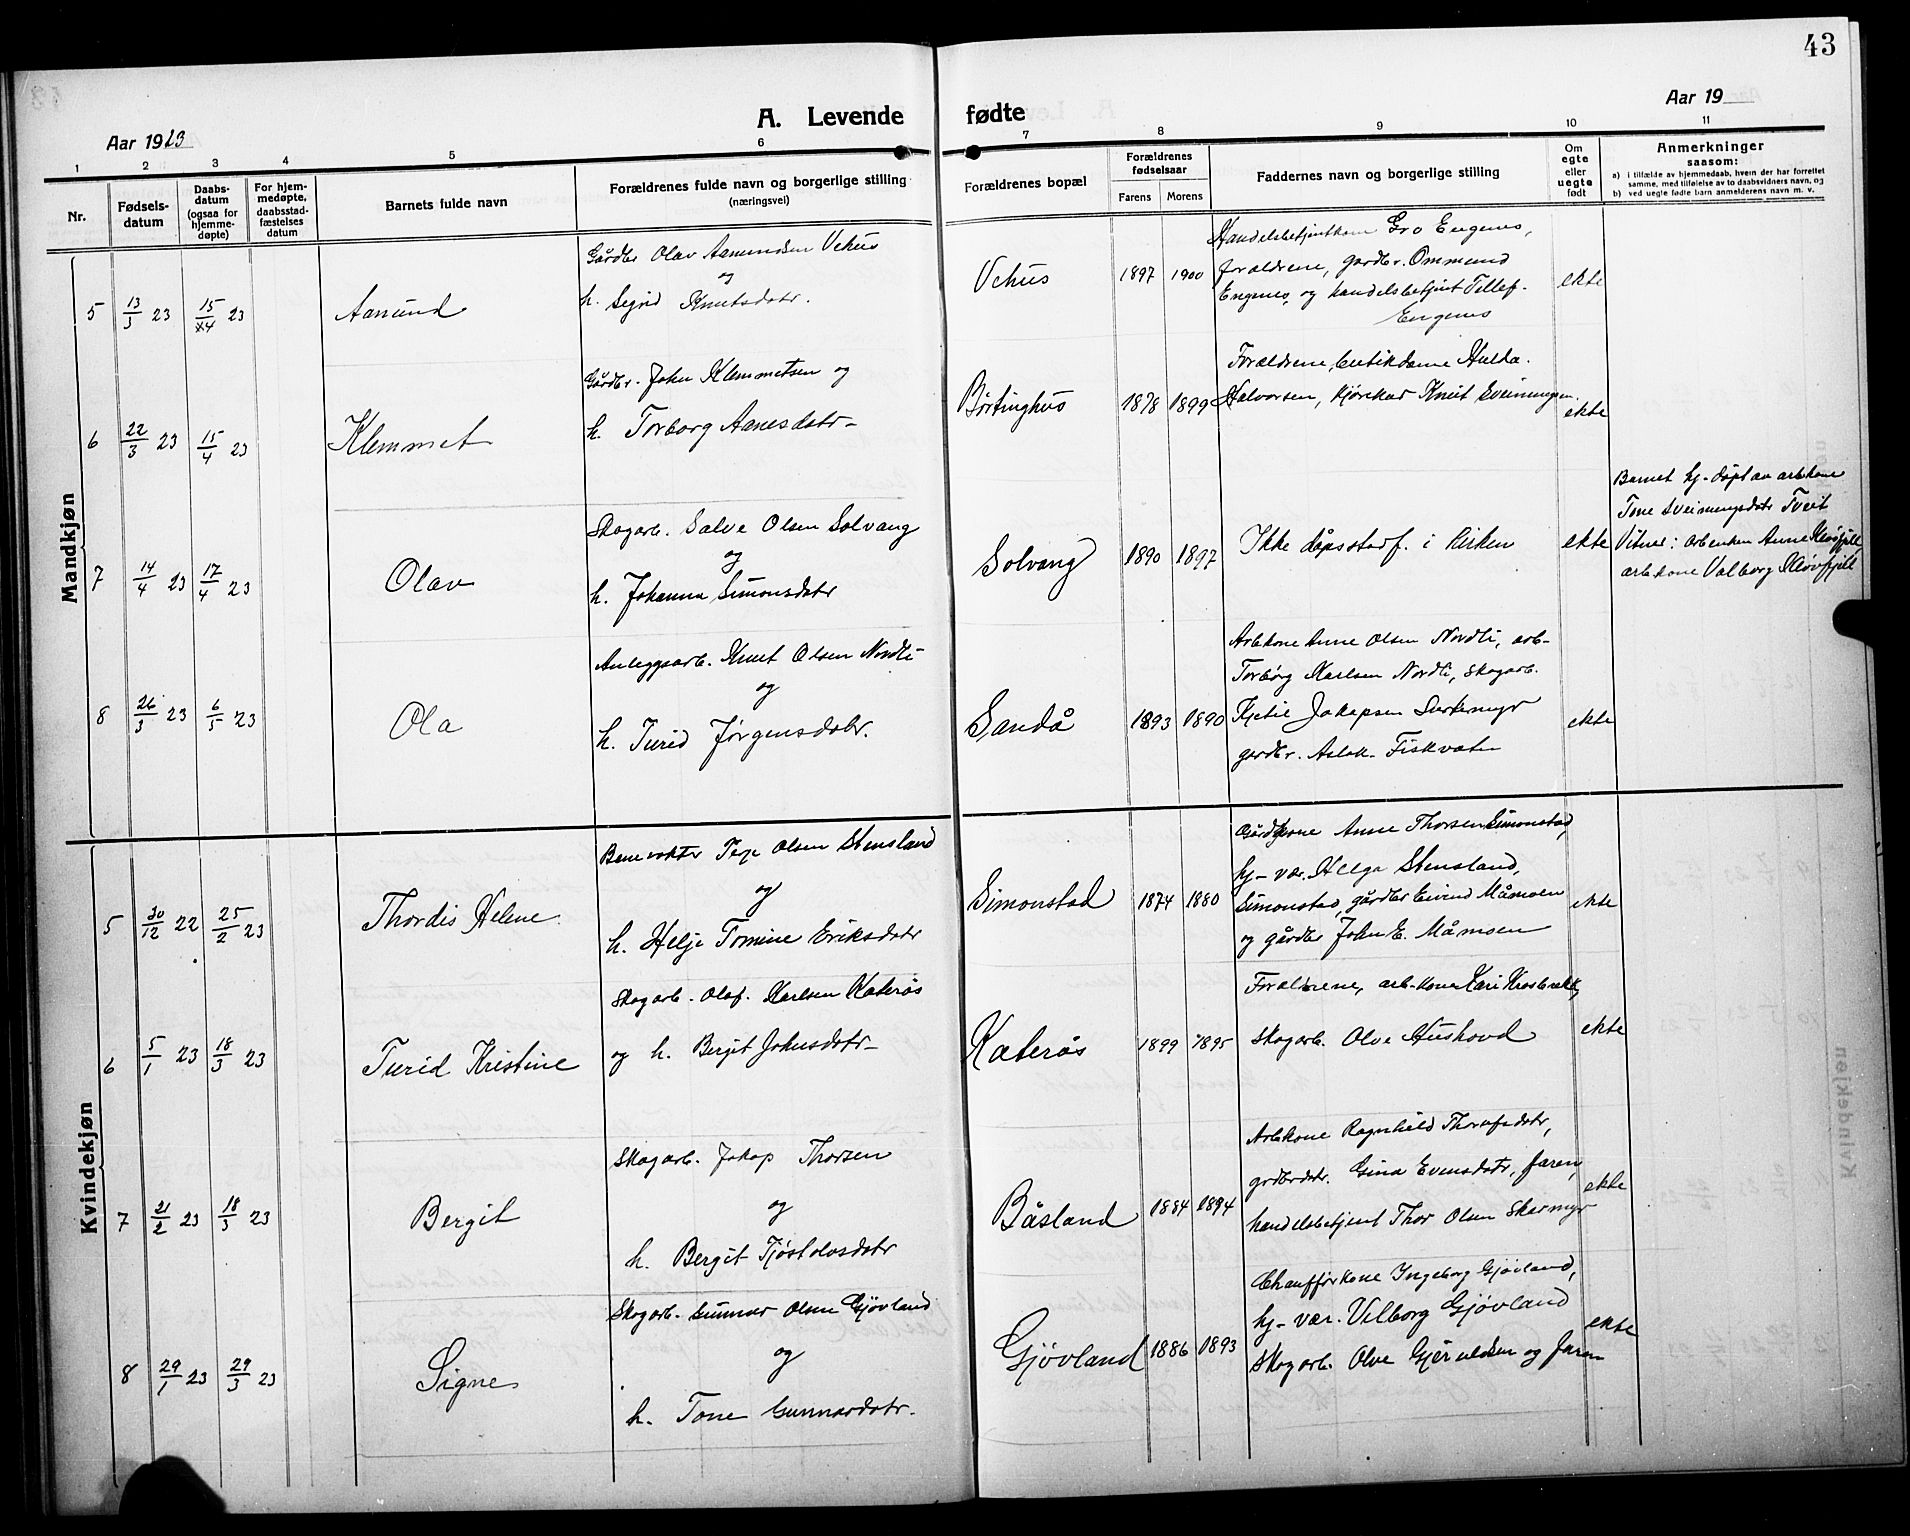 43
A. Levende fødte
Aar 1923
Aar 19
1 2 3 4 5 6 7 8 9 10 11
Nr.
Fødsels-
datum
Daabs-
datum
(ogsaa for
hjemme-
døpte)
For hjem-
medøpte,
daabsstad-
fæstelses
datum
Barnets fulde navn
Forældrenes fulde navn og borgerlige stilling
(næringsvei)
Forældrenes bopæl
Forældrenes
fødselsaar
Farens Morens
Faddernes navn og borgerlige stilling
Om
egte
eller
uegte
født
Anmerkninger
saasom:
a) i tilfælde av hjemmedaab, hvem der har forrettet
samme, med tilføielse av to daabsvidners navn, og
b) ved uegte fødte barn anmelderens navn m. v.
Mandkjøn
5 13/3 23 15/4 23
Aamund
Gårdbr Olav Aamundsen Vehus
og
h. Sigrid Knutsdatr.
Vehus 1897 1900
Handelsbetjentkone Gro Engenes,
foraldrene, gardbr. Ommund
Engenes, og handelsbetjent Tellef
Engenes
ekte
6 22/3 23 15/4 23
Klemmet
Gårdbr. John Klemmetsen og
h. Torborg Aanesdatr
Børtinghus 1878 1899
Foraldrene, butikdame Hulda
Halvorsen, kjørekar Knut Sveinungsen.
ekte
7 14/4 23 17/4 23
Olav
Skogarb. Salve Olsen Solvang
og
h. Johanna Simonsdatr
Solvang 1890 1897
Ikke dåpsstadf. i kirken
ekte
Barnet hj-døpt av arbkone
Tone Sveinungsdatr Tveit
Vitner: arbenken Anne Kløvfjell,
arbkone Valborg Kløvfjell
8 26/3 23 6/5 23
Ola
Anleggsarb. Knut Olsen Nordli
og
h. Turid Jørgensdatr.
Sandå 1893 1890
Arbkone Anne Olsen Nordli, arb-
Torbørg Karlsen Nordli, skogarb.
Kjetil Jakopsen
gardbr. Aslak Fiskvatn
ekte
Kvindekjøn
5 30/12 22 25/2 23
Thordis Helene
Banevokter Terje Olsen Stensland
og
h. Helje Tomine Eriksdatr
Simonstad 1874 1880
Gårdkone Anne Thorsen Simonstad,
hj-vær. Helga Stensland,
Simonstad, gårdbr Eivind Måmoen
og gårdbr John E. Måmoen
ekte
6 5/1 23 18/3 23
Turid Kristine
Skogarb. Olaf. Karlsen Katerås
og h. Bergit Johnsdatr
Katerås 1899 1895
Foraldrene, arb-kone Kari Krosbrekk,
skogarb. Olve Hushovd
ekte
7 21/2 23 18/3 23
Bergit
Skogarb. Jakop Thorsen
og
h. Bergit Tjøstolvsdatr
Båsland 1884 1894
Arbkone Ragnhild Thorefsdatr,
grdbrdatr. Gina Evensdatr, faren,
handelsbetjent Thor Olsen Skarmyr
ekte
8 29/1 23 29/3 23
Signe
Skogarb. Gunnar Olsen Gjøvland
og
h. Tone Gunnardatr.
Gjøvland 1886 1893
Chaufførkone Ingeborg Gjøvland,
hj-vær. Vilborg Gjøvland
Skogarb. Olve Gjeruldsen og faren
ekte